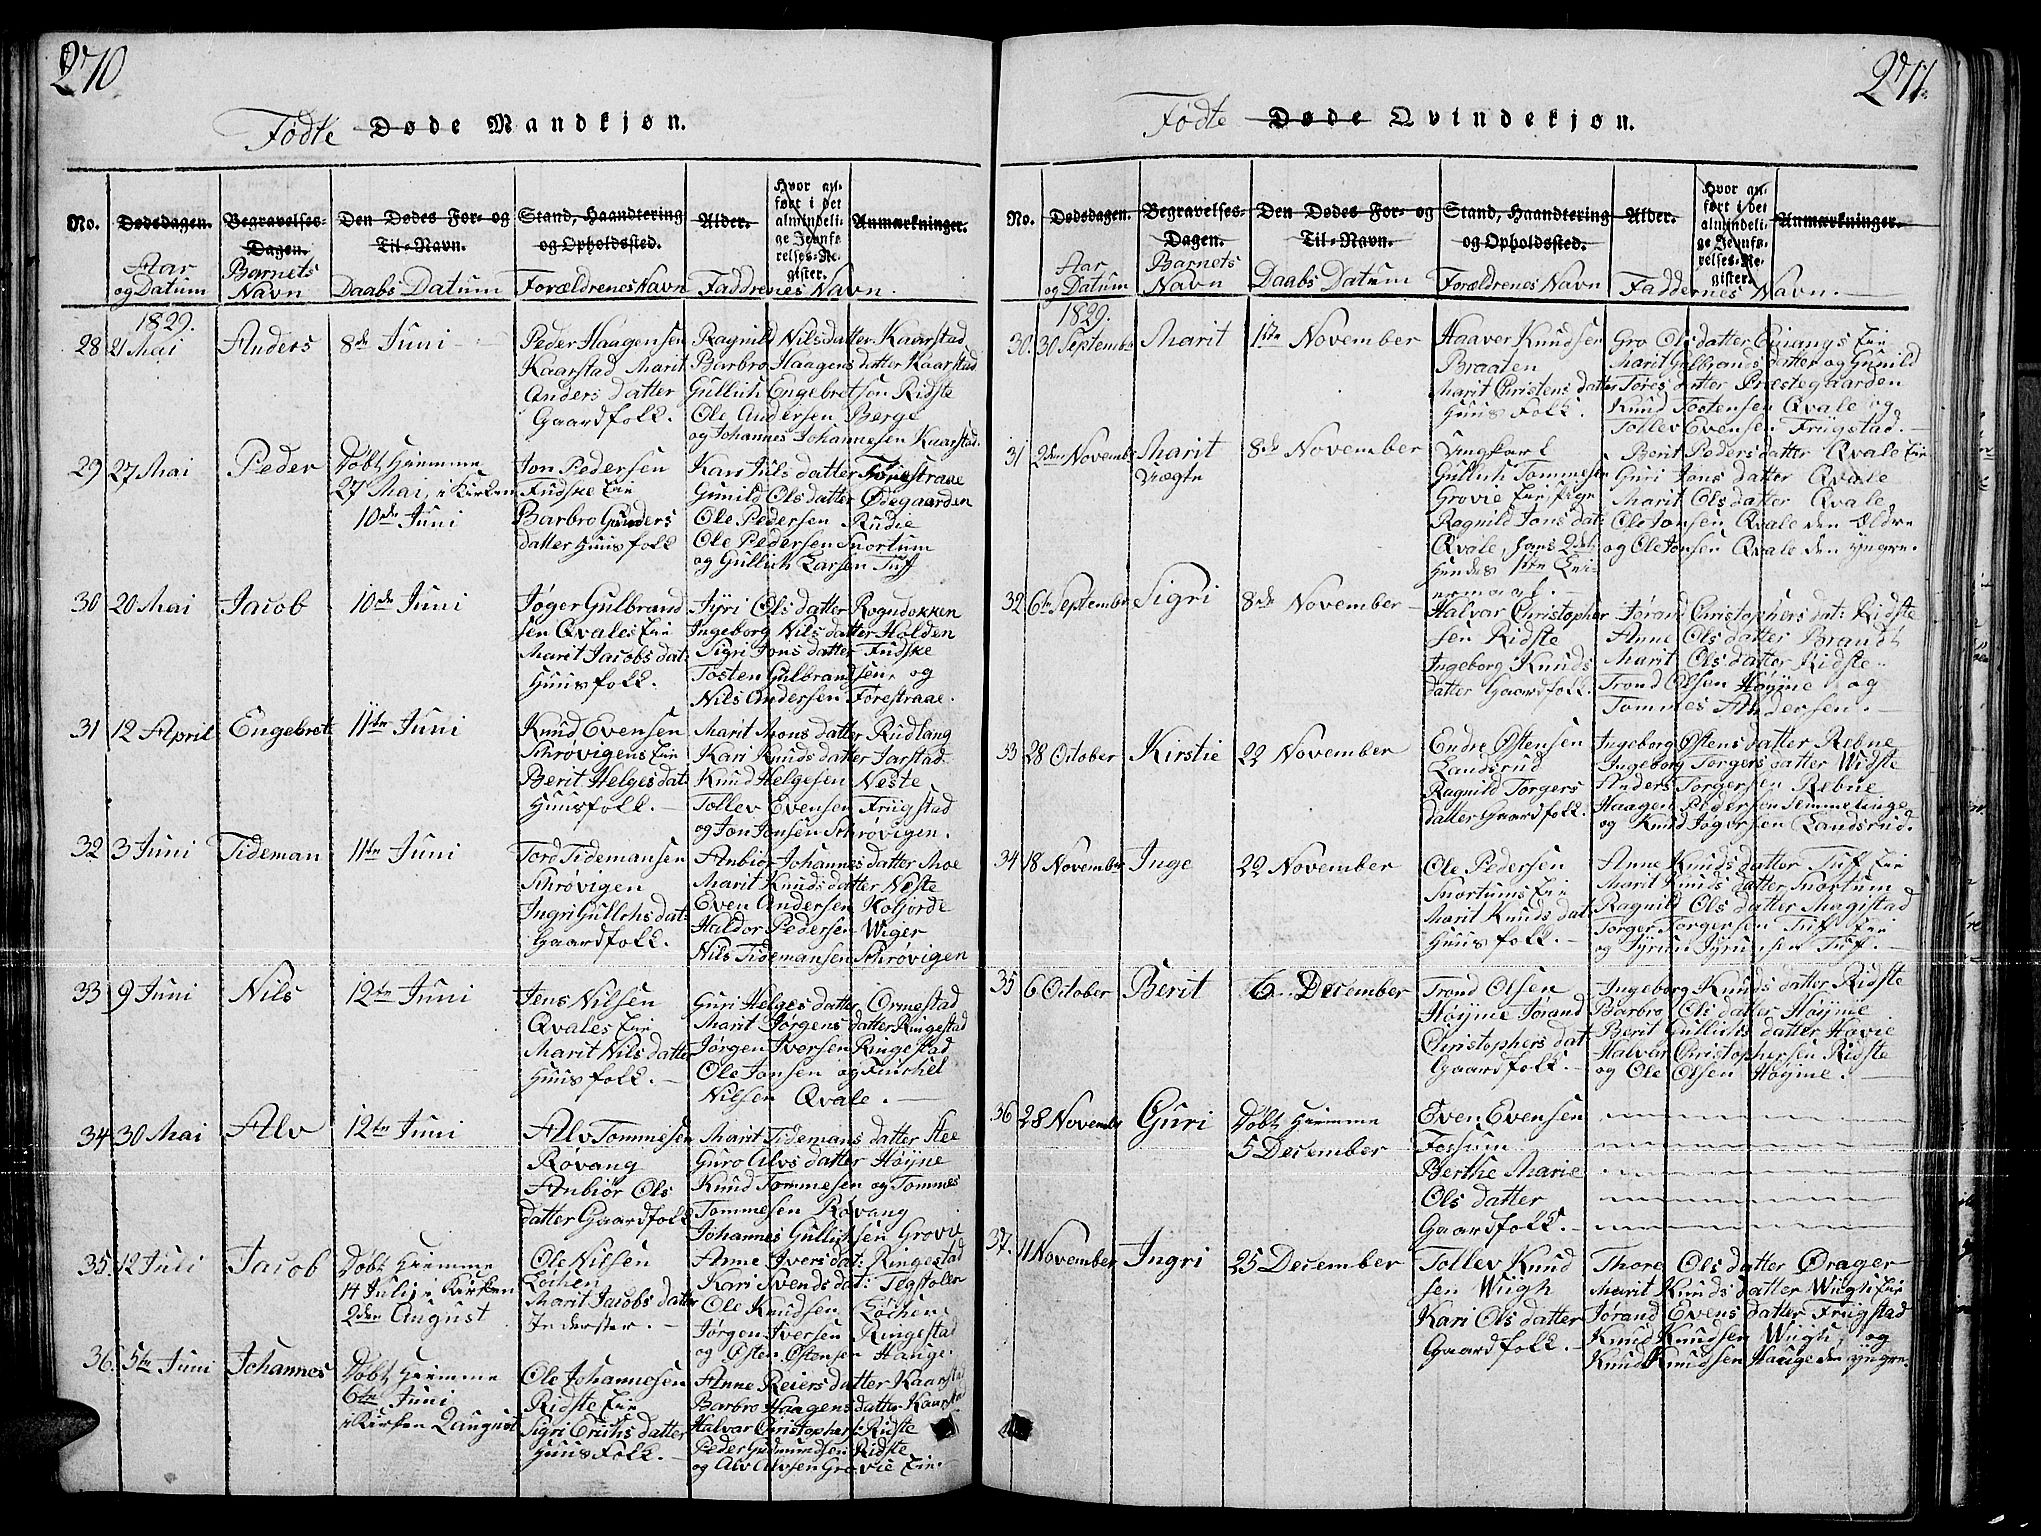 270
Fødte Døde Mandkjøn.
No. Dødsdagen. Begravelses-Dagen. Den Dødes For- og Til-Navn. Stand, Haandtering og Opholdssted. Alder. Hvor anført i det almindelige Jevnførelses-Register. Anmærkninger.
Aar og Datum Barnets Navn Daabs Datum Forældrenes Navn Faddrenes Navn.
1829.
28 21 Mai Anders 8de Juni Peder Haagensen Ragnild Nilsdatter Kaarstad
Kaarstad Marit Barbro Haagens datter Kaarstad
Anders datter Gullich Engebretsen Ridste
Gaardfolk. Ole Andersen Berge
og Johannes Johannesen Kaarstad.
29 27 Mai Peder Døbt hiemme Jon Pedersen Kari Juls datter
27 Mai, i Kirken Fudske Eie Gunild Ols datter Ødegaarden
10de Juni Barbro Gunders Ole Pedersen Rudie
datter Huusfolk Ole Pedersen Snortum
og Gullich Larsen Tuff
30 20 Mai Jacob 10de Juni Jøger Gulbrand Jyri Ols datter Rogndokken
sen Qvales Eie Ingeborg Nils datter Holden
Marit Jacobs dat: Sigri Jons datter Fudske
Huusfolk. Tosten Gulbrandsen, og
Nils Andersen Forestraae.
31 12 April Engebret 11te Juni Knud Evensen Marit Mons datter Rudlang
Schrøvigens Eie Kari Knuds datter Jarstad
Berit Helges dat: Knud Helgesen Neste
Huusfolk. Tollev Evensen Frugstad
og Jon Jonsen Schrøvigen.
32 3 Juni Tideman 11te Juni Tord Tidemansen Anbiør Johannes datter Moe
Schrøvigen Marit Knuds datter Neste
Ingri Gullichs dat: Even Andersen Koljorde
Gaardfolk. Haldor Pedersen Wiger
Nils Tidemansen Schrøvigen
33 9 Juni Nils 12te Juni Jens Nilsen Guri Helges datter Ormestad
Qvales Eie Marit Jørgens datter Ringestad
Marit Nils datter Jørgen Iversen Ringestad
Huusfolk. Ole Jonsen og Finchel
Nilsen Qvale.
34 30 Mai Alv 12te Juni Alv Tommesen Marit Tidemans datter Stee
Røvang Guro Alvs datter Høyne
Anbiør Ols Knud Tommesen og Tommes
datter Gaardfolk Tommesen Røvang
Johannes Gullichsen Grovie
35. 12 Juli Jacob Døbt hiemme Ole Nilsen Anne Ivers dat: Ringestad
14 Juli, i Kirken Lochen Kari Svends dat: Tegstolen
2den August Marit Jacobs datter Ole Knudsen Lochen
Inderster. Jørgen Iversen Ringestad
og Østen Østensen Hauge.
36. 5te Juni Johannes Døbt hiemme Ole Johannesen Anne Reiers datter Kaarstad
6te Juni Ridste Eie Barbro Haagens datter Kaarstad
i Kirken 2 august Sigri Erichs datter Halvar Christophers: Ridste
Huus Folk. Peder Gudmundsen Ridste
og Alv Alvsen Grovie Eie.
271.
Fødte Døde Qvindekjøn.
No. Dødsdagen. Begravelses-Dagen. Den Dødes For- og Til-Navn. Stand, Haandtering og Opholdssted. Alder. Hvor anført i det almindelige Jevnførelses-Register. Anmærkninger.
Aar og Datum Barnets Navn Daabs Datum Forældrenes Navn Faddernes Navn.
1829.
30. 30 September Marit 1ste November Haaver Knudsen Gro Ols datter Eie
Braaten Marit Gulbrands datter og Gunild
Marit Christens datter Tores datter Præstegaarden
Huus Folk. Knud Tostensen Qvale og
Tollev Evensen Frugstad.
31 2den November Marit 8de November Ungkarl Berit Peders datter Qvale Eie
Uægte Gullich Tommesen Guri Jons datter Qvale
Grovie Eie, Pige Marit Ols datter Qvale
Ragnild Jons dat: Ole Jonsen Qvale den Ældre
Qvale, hans 2det og Ole Jonsen Qvale den yngre.
Hendes 1ste Leiermaal.
32 6te September Sigri 8de November Halvar Christopher Jørand Christophers dat: Ridste
sen Ridste Anne Ols datter Brandt
Ingeborg Knuds Marit Ols datter Ridste
datter Gaardfolk. Trond Olsen Høyne, og
Tommes Andersen.
33 28 October Kirstie 22 November Endre Østensen Ingeborg Østens datter Rebne
Landsrud Ingeborg Torgers datter Widste
Ragnild Torgers Anders Torgersen Rebne
datter Gaardfolk. Haagen Pedersen Semmelinge
og Knud Jøgersen Landsrud.
34 18 November Inge 22 November Ole Pedersen Anne Knuds datter Tuf Eie
Snortums Eie Marit Knuds datter Snortum
Marit Knuds dat: Ragnild Ols datter Magistad
Huusfolk. Torger Torgersen Tuf Eie
og Jyrun Jyrunsen Tuf.
35 6 October Berit 6 December Trond Olsen Ingeborg Knuds datter Ridste
Høyne Jørand Barbro Ols datter Høyne
Christophers dat: Berit Gullichs datter Hovie
Gaardfolk. Halvar Christophersen Ridste
og Ole Olsen Høyne.
36 28 November Guri Døbt hiemme Even Evensen
5 December Fossum
Berthe Marie
Ols datter
Gaardfolk.
37. 11 November Ingri 25 December Tollev Knud Thore Ols datter Drager
sen Wiigh Marit Knuds datter Wiigh Eie
Kari Ols datter Jørand Evens datter Frugstad
Gaardfolk. Knud Knudsen Wiigh, og
Knud Knudsen Hauge den yngre.